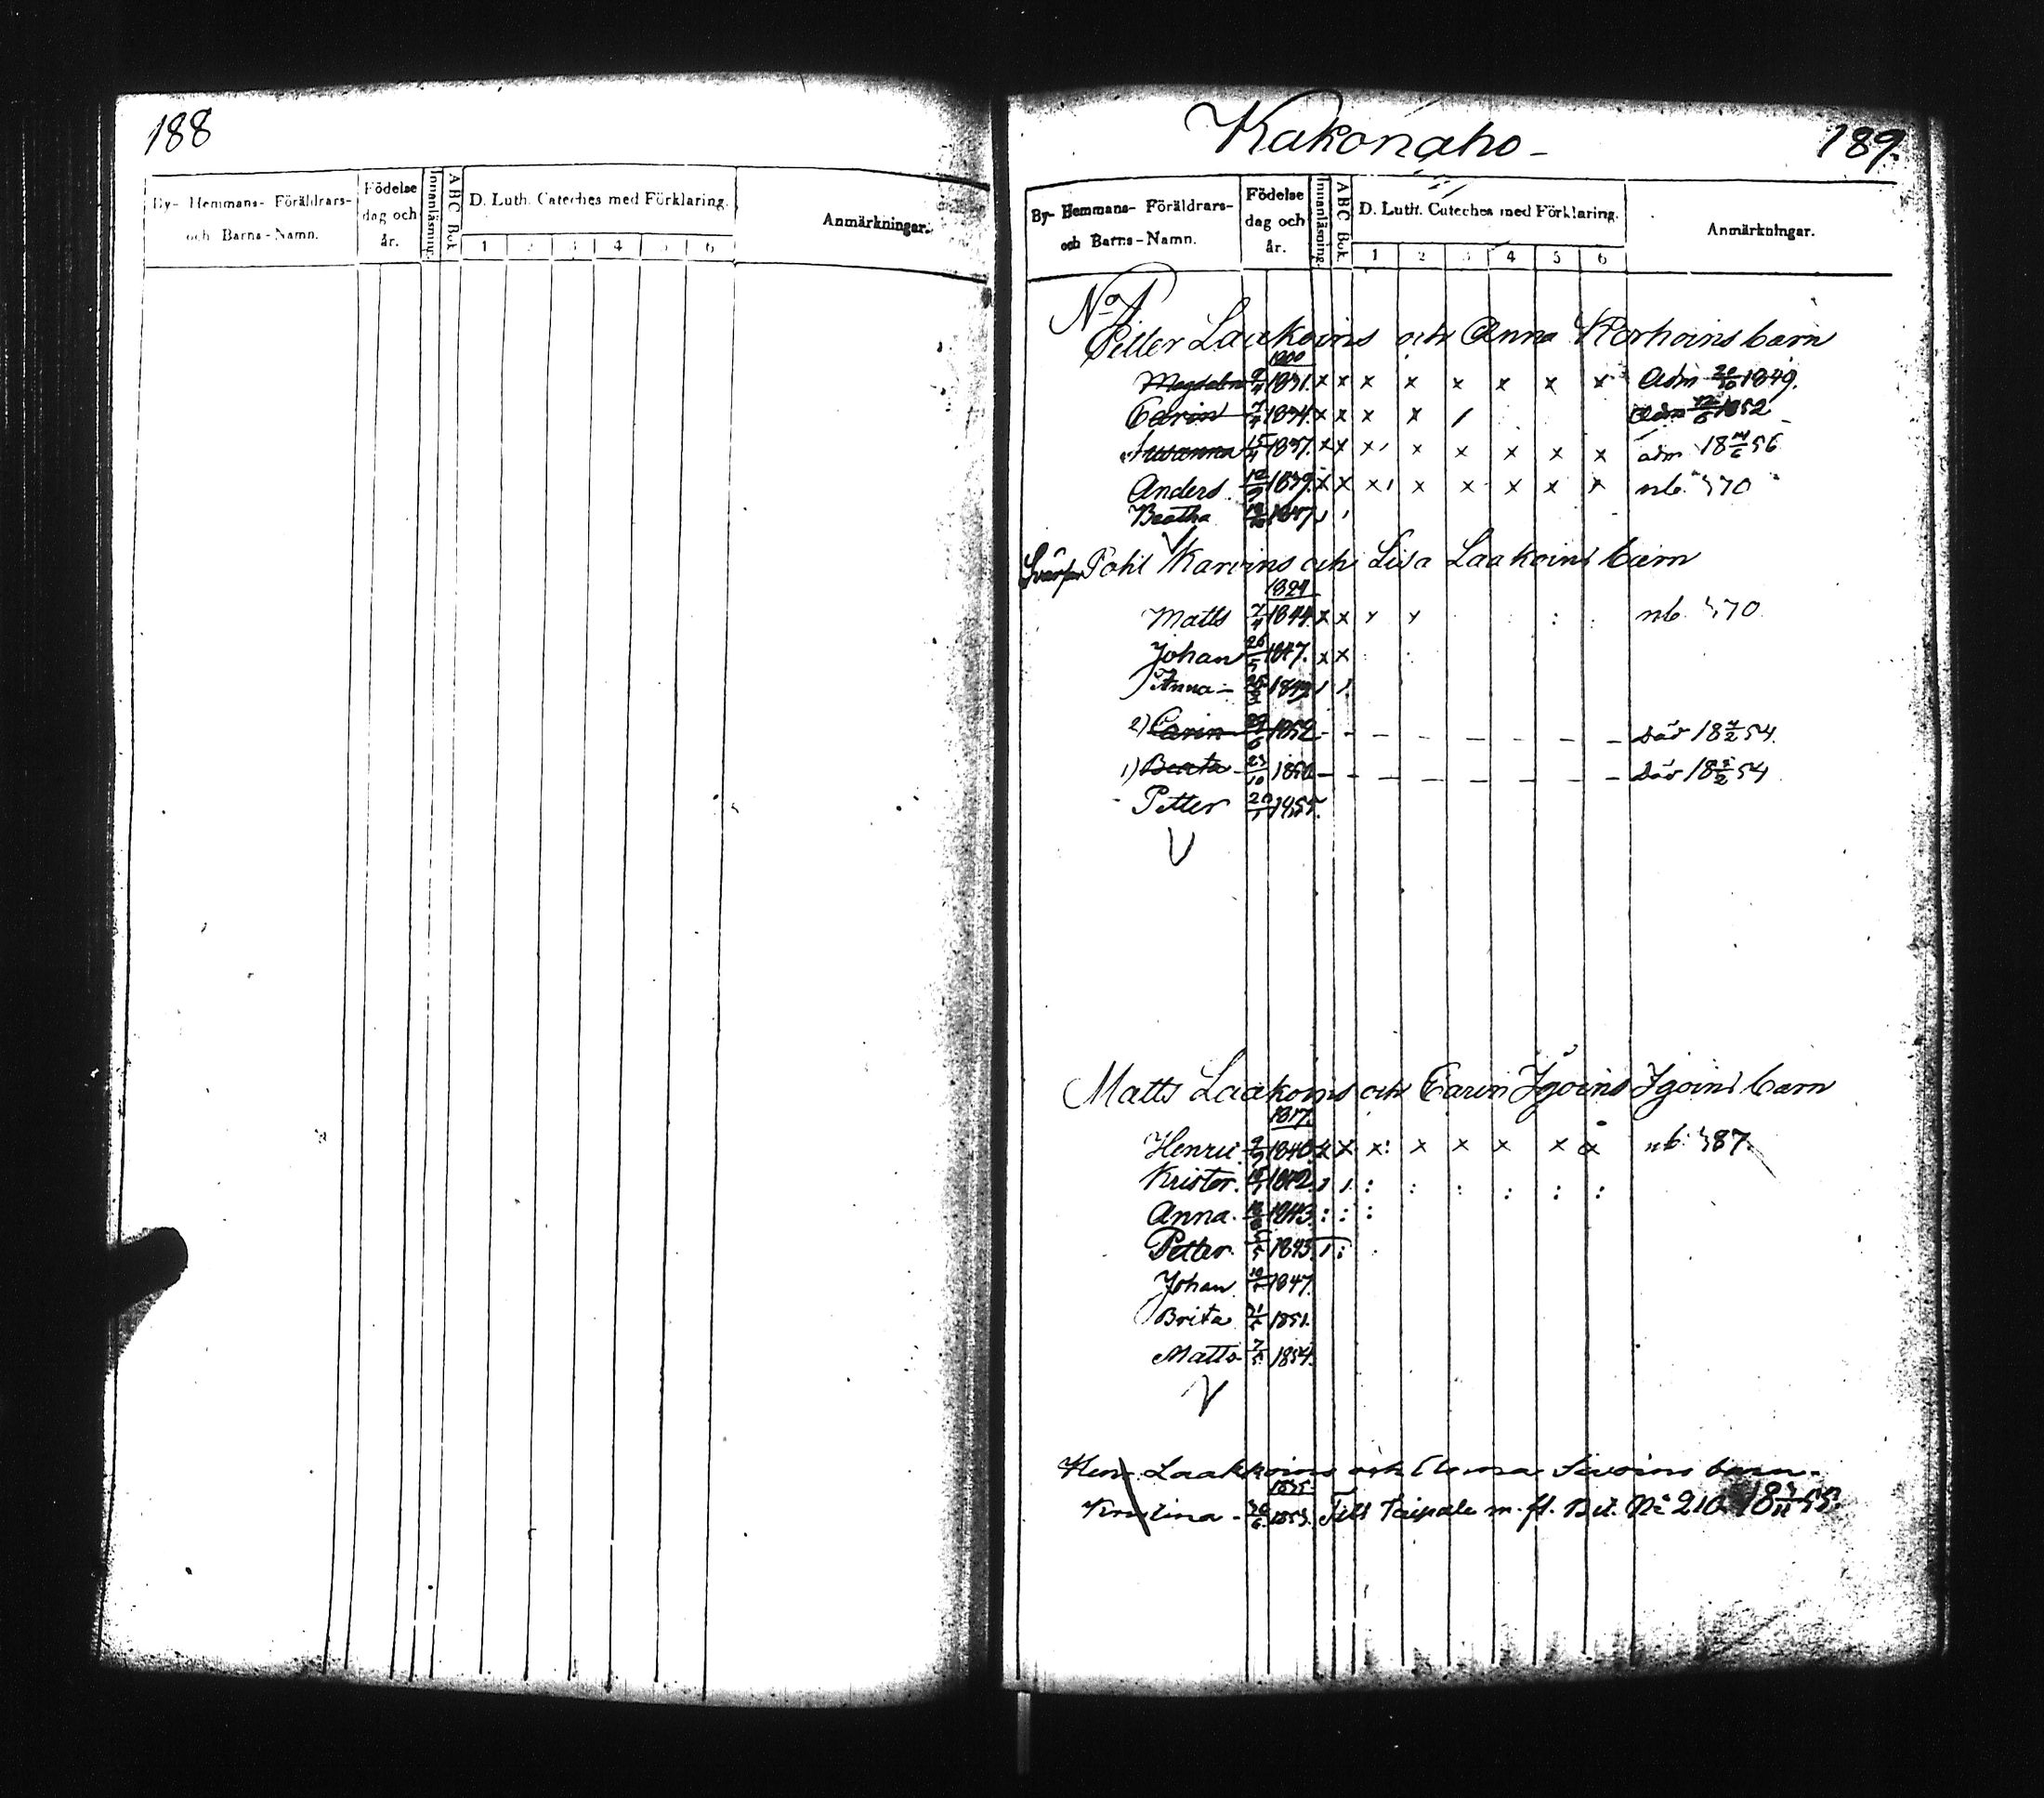 188
By- Hemmans- Föräldrars- och Barns-Namn.
Födelse dag och år.
Innanläsning.
ABC Bok
D. Luth. Cateches med Förklaring.
1 2 3 4 5 6
Anmärkningar.
Kakonaho - 189.
By- Hemmans- Föräldrars- och Barns-Namn.
Födelse dag och år.
Innanläsning.
ABC Bok
D. Luth. Cateches med Förklaring.
1 2 3 4 5 6
Anmärkningar.
No 1
Petter Laakoins och Anna Korhoins barn
1800
Magdalena 1831. x x x x x x x x Adm 1849.
Carin 7/4 1834. x x x x / Adm 1852
Susanna 15/4 1837. x x x x x x x x adm 18 56
Anders 1839. x x x x x x x x nb. 70
Beatha 1847
Pohl Karvins och Lisa Laakoins barn
1824
Matts 7/4 1844. x x x x nb. 70
Johan 26/5 1847. x x
Anna - 1849
2) Carin 29/6 1852 - - - - - - - - död 18 4/2 54.
1) Beata 23/10 1850 - - - - - - - - död 18 2/2 54
Petter 1855.
Matts Laakoins och Carin Igoins Igoins barn
1817.
Henric 1840. x x x: x x x x x nb. 87.
Krister. 1842. : : : : : :
Anna. 1843. : : :
Petter. 1845.
Johan 1847.
Brita 1851.
Matts 7/5 1854.
Henr Laakkoins och Anna Savoins barn.
1835.
Kristina - 1853. Till Taipale m. fl. Bit. No 210. 18 55.